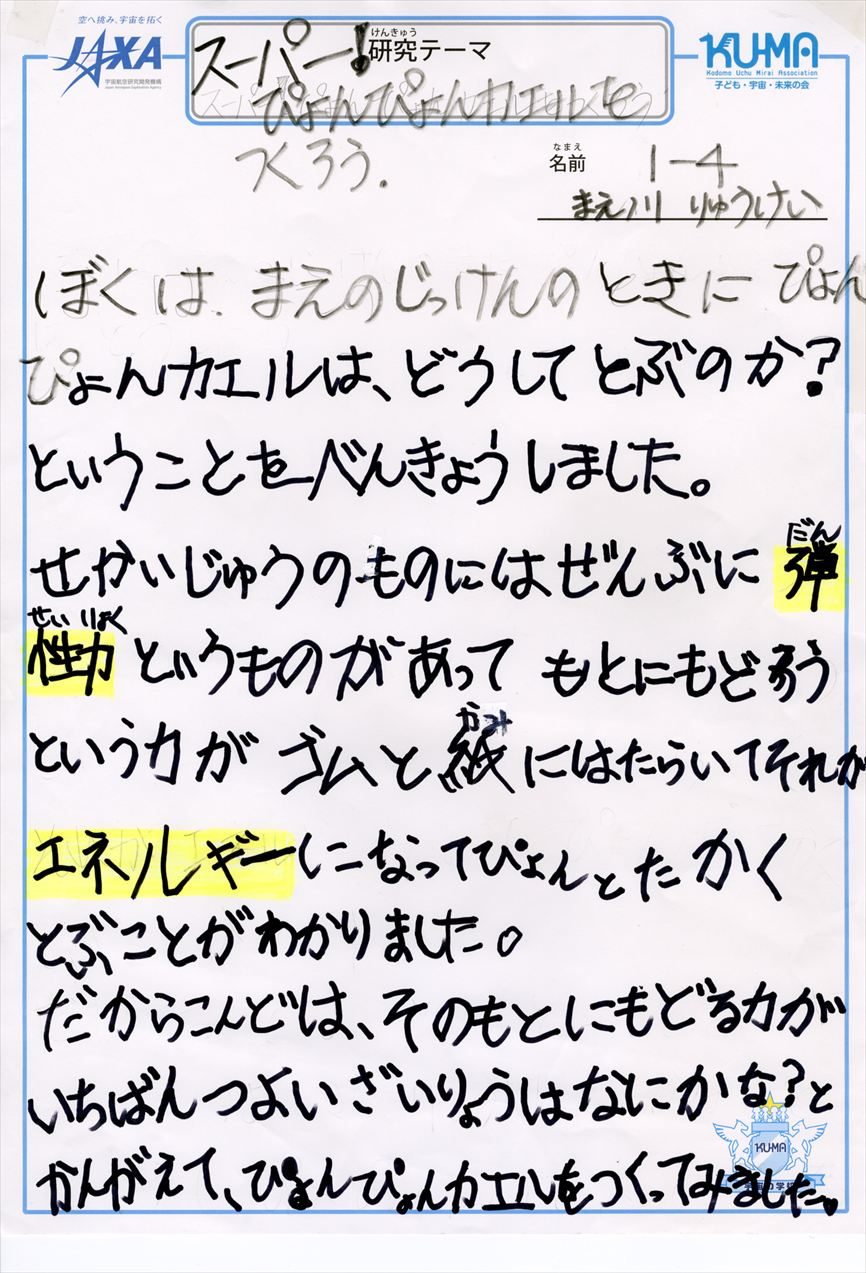 空へ挑み、宇宙を拓く
JAXA
宇宙航空研究開発機構
Japan Aerospace Exploration Agency
けんきゅう
研究テーマ
KU-MA
Kodomo Uchu Mirai Association
子ども・宇宙・未来の会
スーパー!
ぴょんぴょんカエルを
つくろう.
なまえ
名前
1-4
まえ川 りゅうけい
ぼくは、まえのじっけんのときにぴょん
ぴょんカエルは、どうしてとぶのか?
ということをべんきょうしました。
だん
せかいじゅうのものにはぜんぶに弾
せいりょく
性力というものがあってもとにもどろう
かみ
という力がゴムと紙にはたらいてそれが
エネルギーになってぴょんとたかく
とぶことがわかりました。
だからこんどは、そのもとにもどる力が
いちばんつよいざいりょうはなにかな?と
かんがえて、ぴょんぴょんカエルをつくってみました。
KU-MA
宇宙の学校